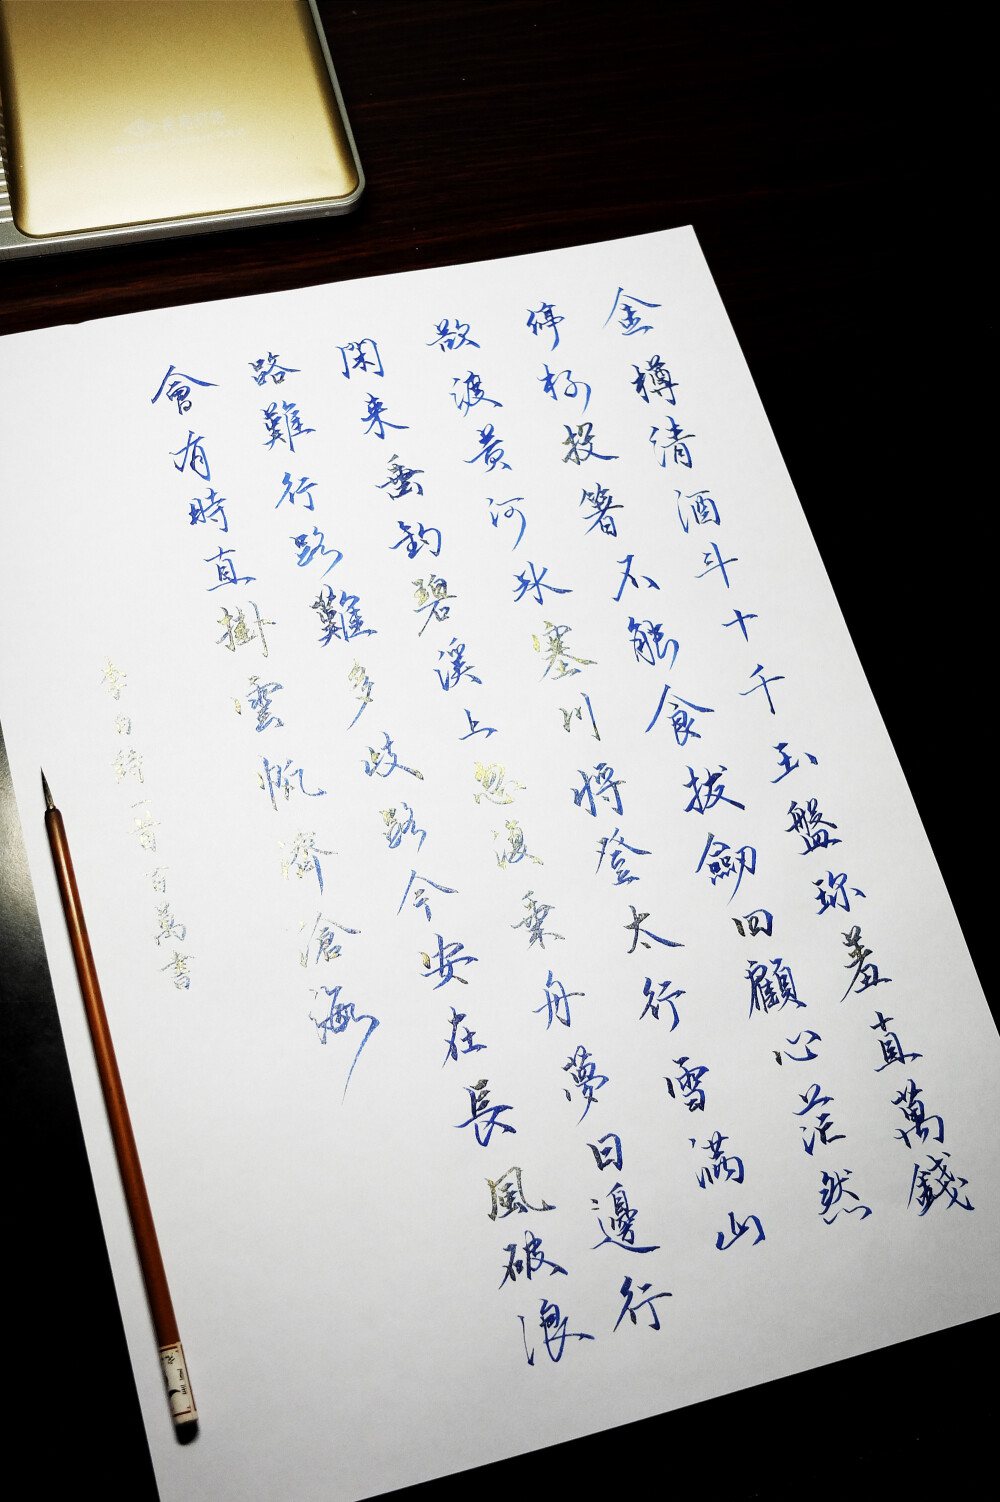 金樽清酒斗十千玉盤珎羞直萬錢
停杯投箸不能食拔劒四顧心茫然
欲渡黄河冰塞川將登太行雪滿山
閑来垂釣碧溪上忽復乘舟夢日邊行
路難行路難多歧路今安在長風破浪
會有時直掛雲帆濟滄海
李白詩一首百萬書